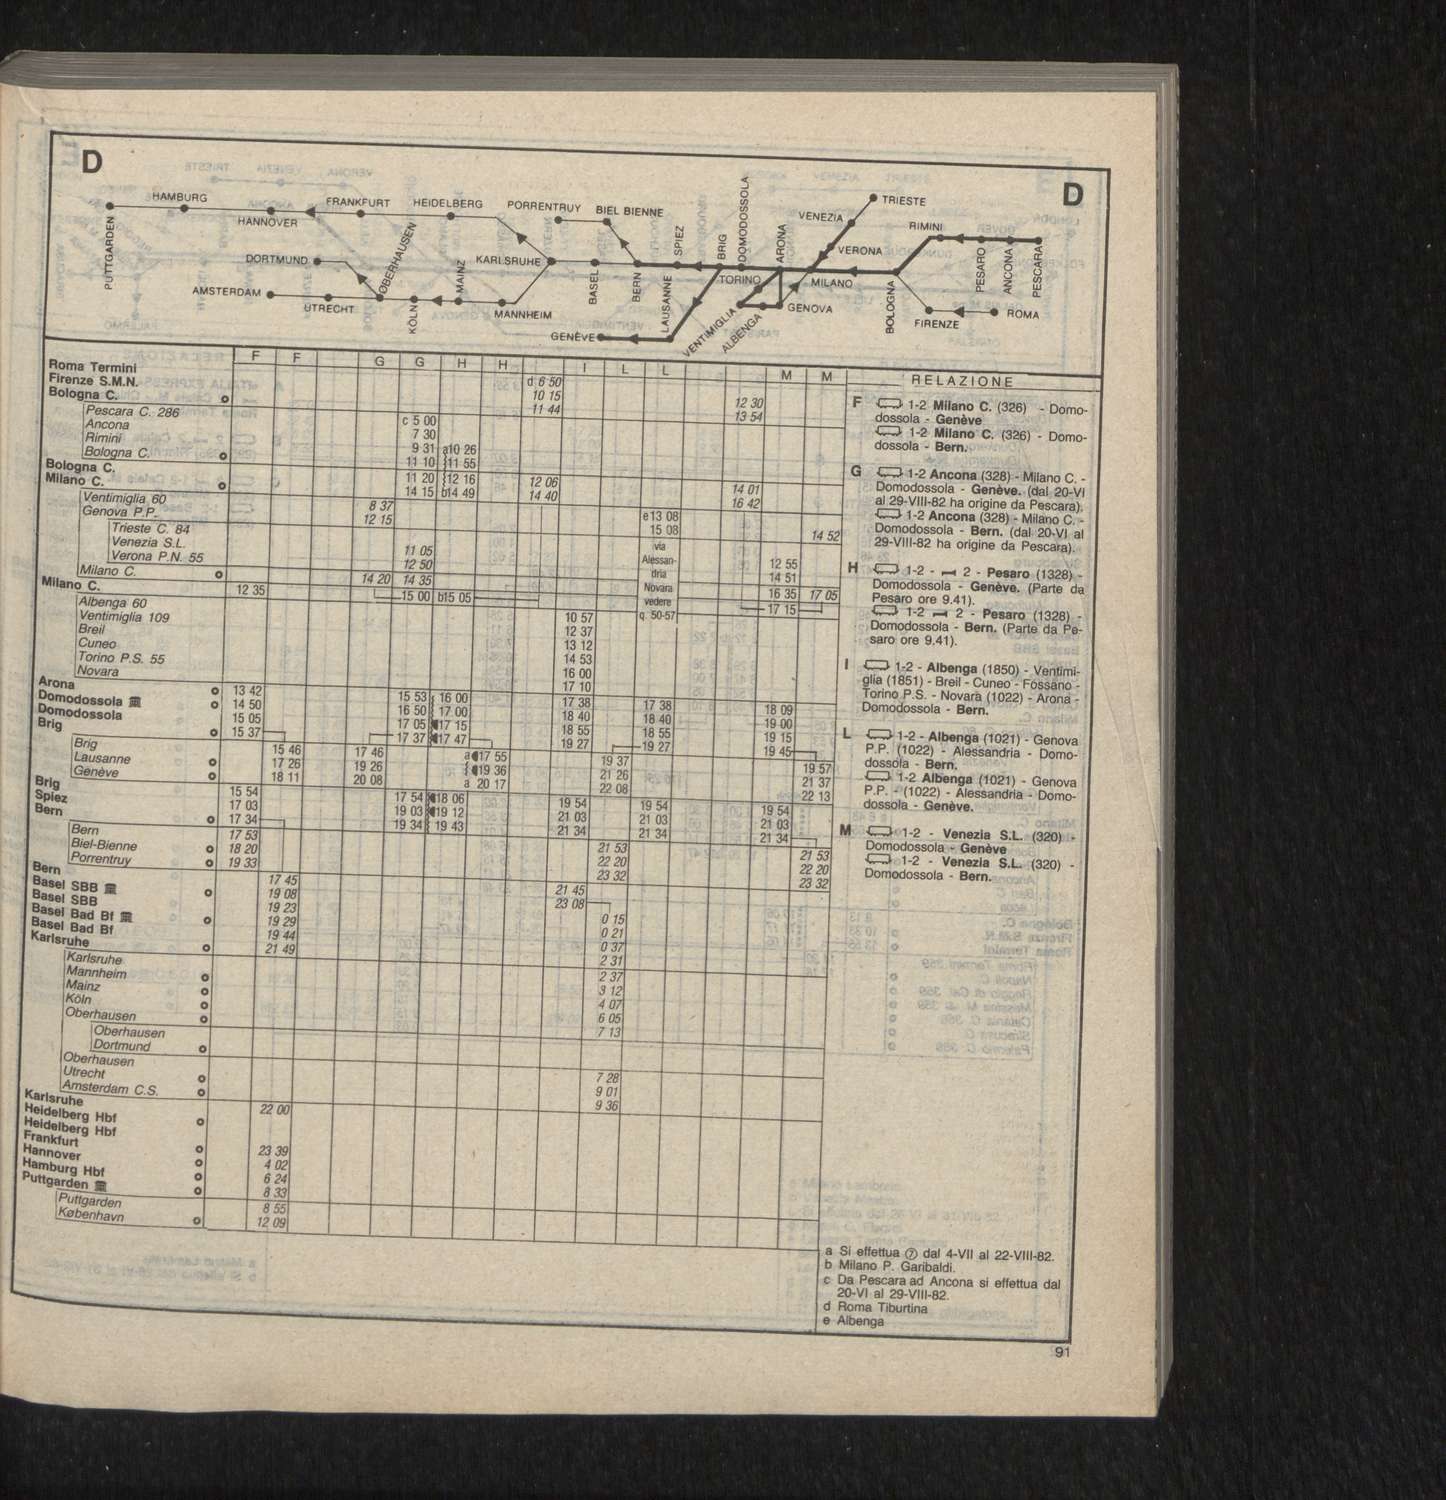 D
D
HAMBURG
HANNOVER
FRANKFURT
HEIDELBERG
PORRENTRUY
BIEL BIENNE
PUTTGARDEN
DORTMUND
OBERHAUSEN
AMSTERDAM
UTRECHT
KÖLN
MAINZ
MANNHEIM
KARLSRUHE
BASEL
BERN
SPIEZ
LAUSANNE
GENÈVE
BRIG
DOMODOSSOLA
TORINO
ARONA
VENTIMIGLIA
ALBENGA
GENOVA
MILANO
VERONA
VENEZIA
TRIESTE
BOLOGNA
RIMINI
PESARO
ANCONA
PESCARA
FIRENZE
ROMA
F F G G H H I L L M M RELAZIONE
Roma Termini d 6 50
Firenze S.M.N. 10 15 12 30
Bologna C. 11 44 13 54
Pescara C. 286 c 5 00
Ancona 7 30
Rimini 9 31 a10 26
Bologna C. 11 10 11 55
Bologna C. 11 20 12 16 12 06 14 01
Milano C. 14 15 b14 49 14 40 16 42
Ventimiglia 60 8 37 e13 08
Genova P.P. 12 15 15 08 14 52
Trieste C. 84 via
Venezia S.L. 11 05 Alessan- 12 55
Verona P.N. 55 12 50 dria 14 51
Milano C. 14 20 14 35 Novara 16 35 17 05
Milano C. 12 35 15 00 b15 05 vedere 17 15
Albenga 60 10 57 q. 50-57
Ventimiglia 109 12 37
Breil 13 12
Cuneo 14 53
Torino P.S. 55 16 00
Novara 17 10
Arona 13 42 15 53 16 00 17 38 17 38 18 09
Domodossola 14 50 16 50 17 00 18 40 18 40 19 00
Domodossola 15 05 17 05 17 15 18 55 18 55 19 15
Brig 15 37 17 37 17 47 19 27 19 27 19 45
Brig 15 46 17 46 a 17 55 19 37 19 57
Lausanne 17 26 19 26 19 36 21 26 21 37
Genève 18 11 20 08 a 20 17 22 08 22 13
Brig 15 54 17 54 18 06 19 54 19 54 19 54
Spiez 17 03 19 03 19 12 21 03 21 03 21 03
Bern 17 34 19 34 19 43 21 34 21 34 21 34
Bern 17 53 21 53 21 53
Biel-Bienne 18 20 22 20 22 20
Porrentruy 19 33 23 32 23 32
Bern 17 45 21 45
Basel SBB 19 08 23 08
Basel SBB 19 23 0 15
Basel Bad Bf 19 29 0 21
Basel Bad Bf 19 44 0 37
Karlsruhe 21 49 2 31
Karlsruhe 2 37
Mannheim 3 12
Mainz 4 07
Köln 6 05
Oberhausen 7 13
Oberhausen
Dortmund
Oberhausen 7 28
Utrecht 9 01
Amsterdam C.S. 9 36
Karlsruhe 22 00
Heidelberg Hbf
Heidelberg Hbf
Frankfurt 23 39
Hannover 4 02
Hamburg Hbf 6 24
Puttgarden 8 33
Puttgarden 8 55
København 12 09
F 1-2 Milano C. (326) - Domo-
dossola - Genève
1-2 Milano C. (326) - Domo-
dossola - Bern.
G 1-2 Ancona (328) - Milano C. -
Domodossola - Genève. (dal 20-VI
al 29-VIII-82 ha origine da Pescara).
1-2 Ancona (328) - Milano C. -
Domodossola - Bern. (dal 20-VI al
29-VIII-82 ha origine da Pescara).
H 1-2 - 2 - Pesaro (1328) -
Domodossola - Genève. (Parte da
Pesaro ore 9.41).
1-2 2 - Pesaro (1328) -
Domodossola - Bern. (Parte da Pe-
saro ore 9.41).
I 1-2 - Albenga (1850) - Ventimi-
glia (1851) - Breil - Cuneo - Fossano -
Torino P.S. - Novara (1022) - Arona -
Domodossola - Bern.
L 1-2 - Albenga (1021) - Genova
P.P. (1022) - Alessandria - Domo-
dossola - Bern.
1-2 Albenga (1021) - Genova
P.P. - (1022) - Alessandria - Domo-
dossola - Genève.
M 1-2 - Venezia S.L. (320) -
Domodossola - Genève
1-2 - Venezia S.L. (320) -
Domodossola - Bern.
a Si effettua ⑦ dal 4-VII al 22-VIII-82.
b Milano P. Garibaldi.
c Da Pescara ad Ancona si effettua dal
20-VI al 29-VIII-82.
d Roma Tiburtina
e Albenga
91